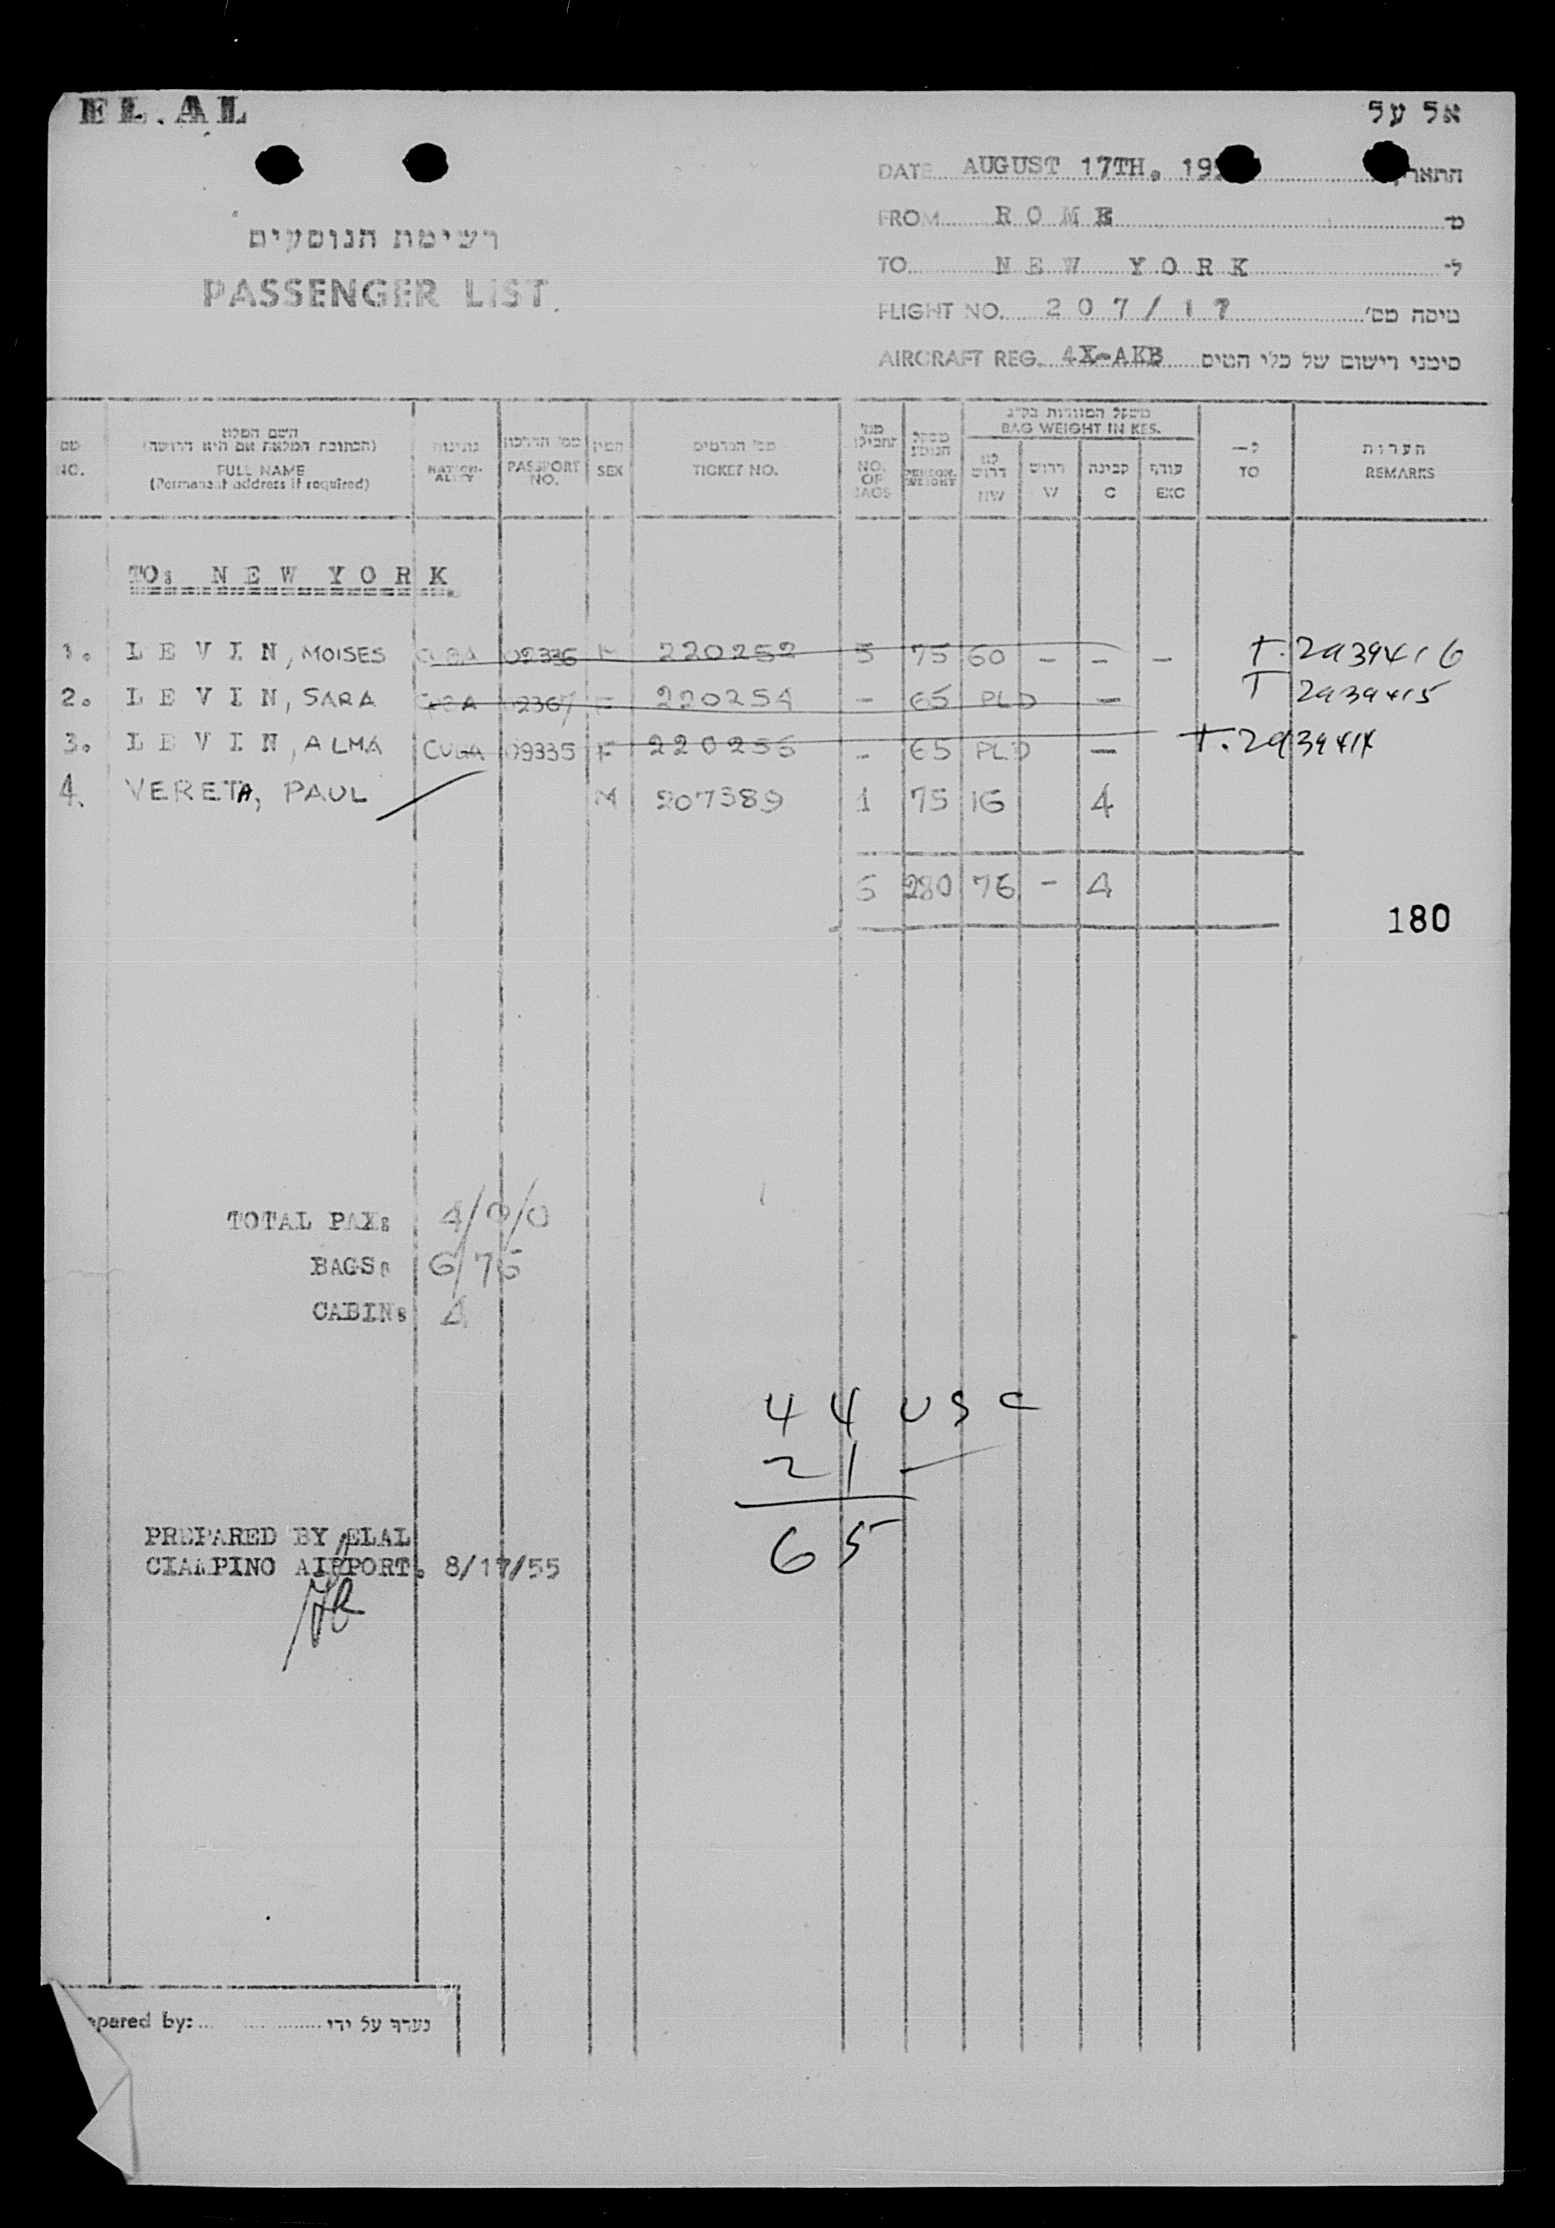 EL.AL
אל על
DATE AUGUST 17TH. 19 התאריך
FROM ROME מ־
TO NEW YORK ל־
FLIGHT NO. 207/17 טיסה מס'
AIRCRAFT REG. 4X-AKB סימני רישום של כלי הטיס
רשימת הנוסעים
PASSENGER LIST.
משקל המזוודות בק"ג
BAG WEIGHT IN KES.
מס השם המלא נתינות מס' הדרכון המין מס' הכרטיס מס' חבילות משקל הנוסע לא דרוש דרוש קבינה עודף ל— הערות
(הכתובת המלאה אם היא דרושה)
NO. FULL NAME NATION-ALITY PASSPORT NO. SEX TICKET NO. NO. OF BAGS PERSON. WEIGHT NW W C EXC TO REMARKS
(Permanent address if required)
TO: NEW YORK
1. LEVIN, MOISES CUBA 02336 M 220252 5 75 60 - - - T. 2939416
2. LEVIN, SARA CUBA 02367 F 220254 - 65 PLD - T 2939415
3. LEVIN, ALMA CUBA 09335 F 220256 - 65 PLD - T. 2939414
4. VERETA, PAUL M 207389 1 75 16 4
6 280 76 - 4
180
TOTAL PAX: 4/0/0
BAGS: 6/76
CABIN: 4
44 USC
21 —
65
PREPARED BY ELAL
CIAMPINO AIRPORT. 8/17/55
epared by: נערך על ידי